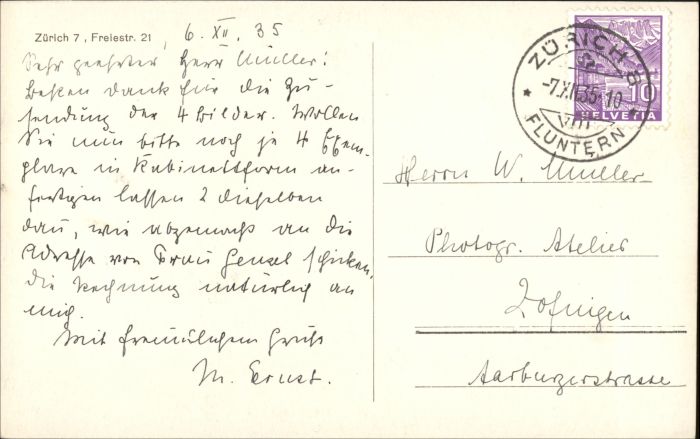 Zürich 7, Freiestr. 21
6. XII. 35
Sehr geehrter Herr Müller!
Besten Dank für die Zu-
sendung der 4 Bilder. Wollen
Sie nun bitte noch je 4 Exem-
plare in Kabinettform an-
fertigen lassen & dieselben
dann, wie abgemacht an die
Adresse von Frau Gensel schicken,
die Rechnung natürlich an
mich.
Mit freundlichem Gruss
M. Ernst.
ZÜRICH 8
-7.XII.35-10
VIII
FLUNTERN
10
HELVETIA
Herrn W. Müller
Photogr. Atelier
Zofingen
Aarburgerstrasse